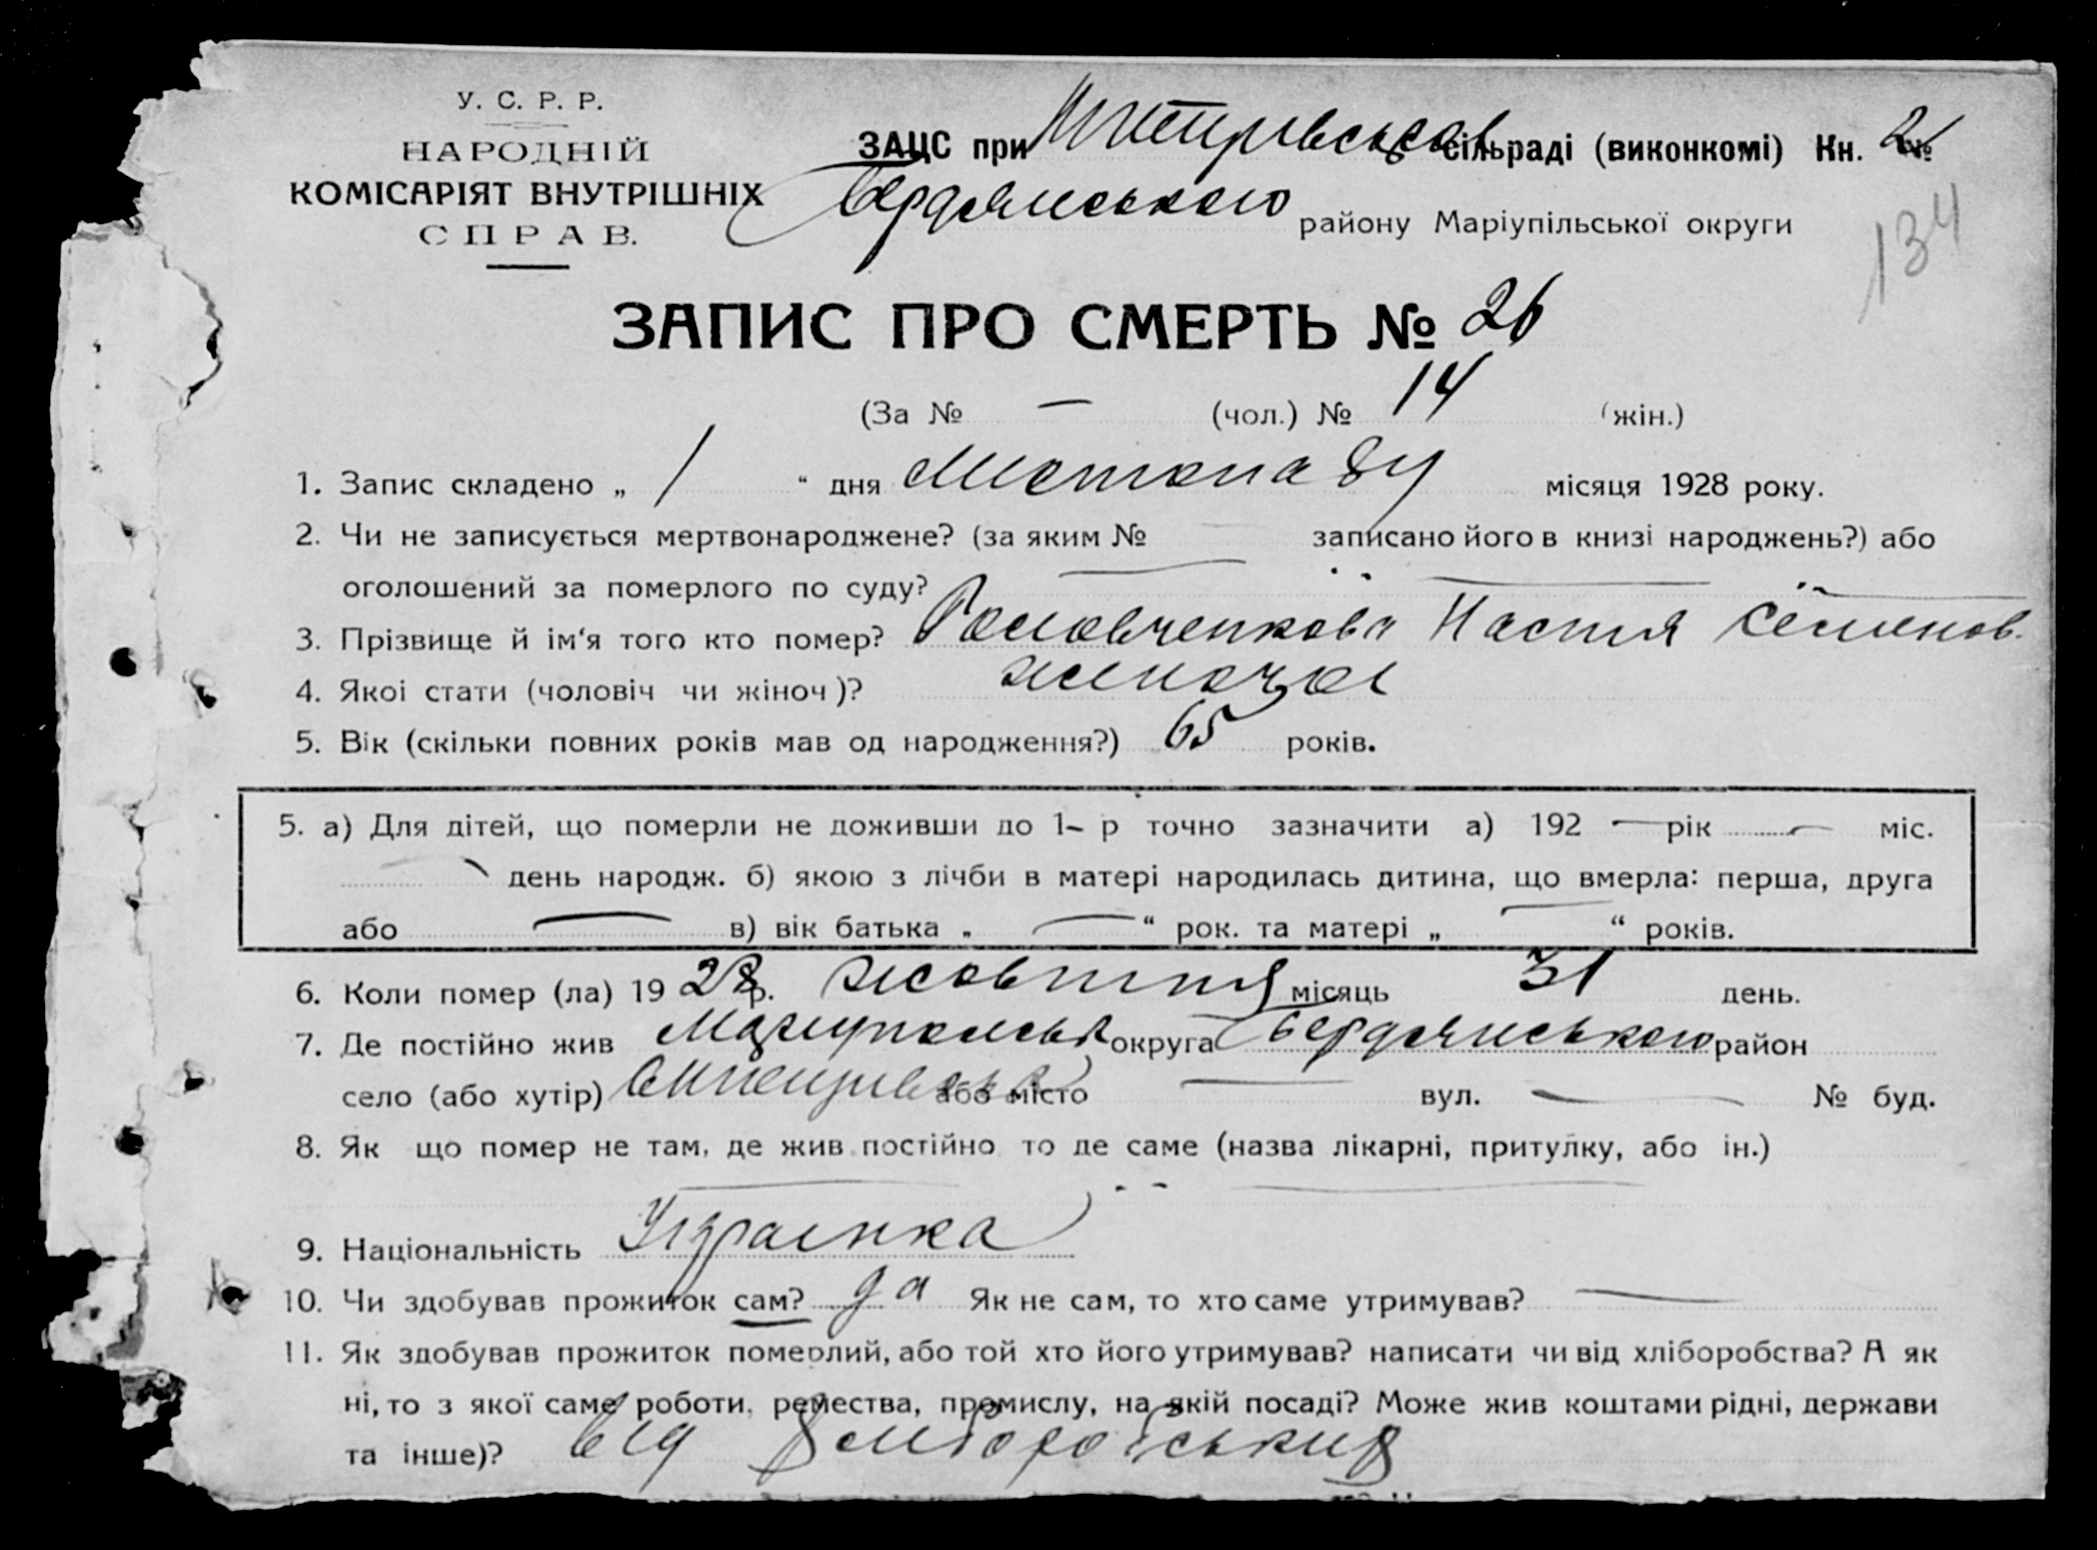 У. С. Р. Р.
НАРОДНІЙ
КОМІСАРІЯТ ВНУТРІШНІХ
СПРАВ.
ЗАЦС при сільраді (виконкомі) Кн. №
Бердянського району Маріупільської округи
134
ЗАПИС ПРО СМЕРТЬ № 26
(За № — (чол.) № 14 (жін.)
1. Запис складено „ 1 “ дня Листопаду місяця 1928 року.
2. Чи не записується мертвонароджене? (за яким № записано його в книзі народжень?) або
оголошений за померлого по суду?
3. Прізвище й ім‘я того кто помер? Настя Семенов.
4. Якоі стати (чоловіч чи жіноч)? жиноча
5. Вік (скільки повних років мав од народження?) 65 років.
5. а) Для дітей, що померли не доживши до 1– р точно зазначити а) 192 — рік — міс.
день народж. б) якою з лічби в матері народилась дитина, що вмерла: перша, друга
або — в) вік батька „ — “ рок. та матері „ — “ років.
6. Коли помер (ла) 1928 р. жовтня місяць 31 день.
7. Де постійно жив округа Бердянського район
село (або хутір) або місто — вул. — № буд.
8. Як що помер не там, де жив постійно то де саме (назва лікарні, притулку, або ін.)
9. Національність Украінка
10. Чи здобував прожиток сам? да Як не сам, то хто саме утримував? —
11. Як здобував прожиток померлий, або той хто його утримував? написати чи від хліборобства? А як
ні, то з якої саме роботи, ремества, промислу, на якій посаді? Може жив коштами рідні, держави
та інше)? від